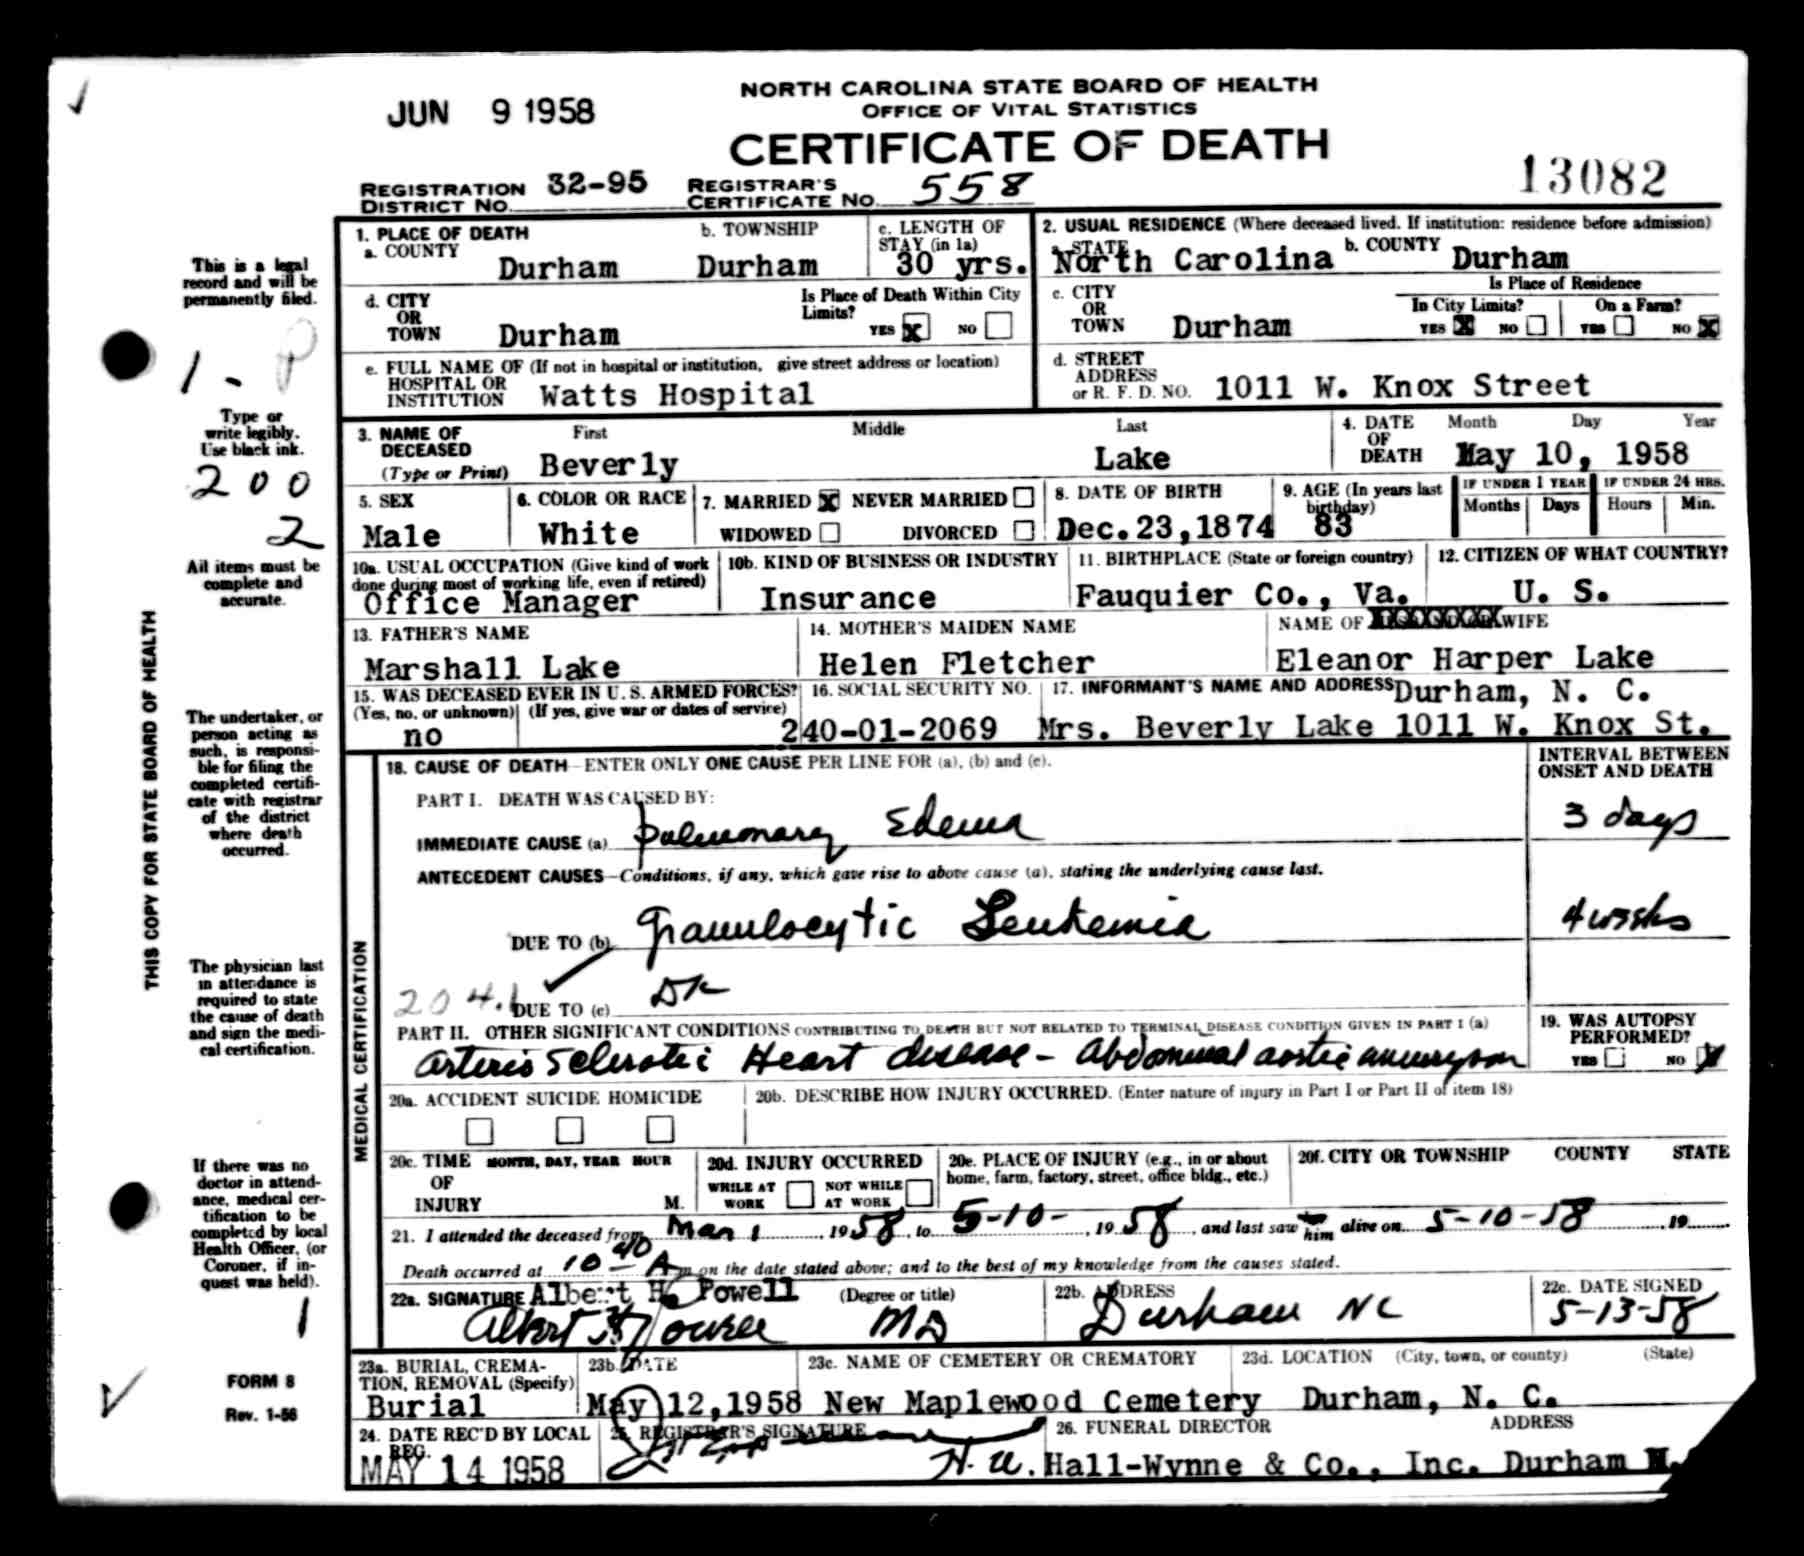 JUN 9 1958
NORTH CAROLINA STATE BOARD OF HEALTH
OFFICE OF VITAL STATISTICS
CERTIFICATE OF DEATH
13082
REGISTRATION DISTRICT NO. 32-95 REGISTRAR'S CERTIFICATE NO. 558
This is a legal record and will be permanently filed.
1 -
Type or write legibly. Use black ink.
200
2
All items must be complete and accurate.
THIS COPY FOR STATE BOARD OF HEALTH
The undertaker, or person acting as such, is responsible for filing the completed certificate with registrar of the district where death occurred.
The physician last in attendance is required to state the cause of death and sign the medical certification.
If there was no doctor in attendance, medical certification to be completed by local Health Officer, (or Coroner, if inquest was held).
1
FORM 8
Rev. 1-56
1. PLACE OF DEATH
a. COUNTY Durham
b. TOWNSHIP Durham
c. LENGTH OF STAY (in 1a) 30 yrs.
2. USUAL RESIDENCE (Where deceased lived. If institution: residence before admission)
a. STATE North Carolina b. COUNTY Durham
d. CITY OR TOWN Durham
Is Place of Death Within City Limits? YES X NO
c. CITY OR TOWN Durham
Is Place of Residence
In City Limits? YES X NO On a Farm? YES NO X
e. FULL NAME OF (If not in hospital or institution, give street address or location)
HOSPITAL OR INSTITUTION Watts Hospital
d. STREET ADDRESS or R. F. D. NO. 1011 W. Knox Street
3. NAME OF DECEASED (Type or Print) First Middle Last
Beverly Lake
4. DATE OF DEATH Month Day Year
May 10, 1958
5. SEX Male
6. COLOR OR RACE White
7. MARRIED X NEVER MARRIED
WIDOWED DIVORCED
8. DATE OF BIRTH Dec.23,1874
9. AGE (In years last birthday) 83
IF UNDER 1 YEAR Months Days
IF UNDER 24 HRS. Hours Min.
10a. USUAL OCCUPATION (Give kind of work done during most of working life, even if retired)
Office Manager
10b. KIND OF BUSINESS OR INDUSTRY
Insurance
11. BIRTHPLACE (State or foreign country)
Fauquier Co., Va.
12. CITIZEN OF WHAT COUNTRY?
U. S.
13. FATHER'S NAME
Marshall Lake
14. MOTHER'S MAIDEN NAME
Helen Fletcher
NAME OF WIFE
Eleanor Harper Lake
15. WAS DECEASED EVER IN U. S. ARMED FORCES?
(Yes, no, or unknown) (If yes, give war or dates of service)
no
16. SOCIAL SECURITY NO.
240-01-2069
17. INFORMANT'S NAME AND ADDRESS Durham, N. C.
Mrs. Beverly Lake 1011 W. Knox St.
MEDICAL CERTIFICATION
18. CAUSE OF DEATH—ENTER ONLY ONE CAUSE PER LINE FOR (a), (b) and (c).
INTERVAL BETWEEN ONSET AND DEATH
PART I. DEATH WAS CAUSED BY:
IMMEDIATE CAUSE (a) Pulmonary Edema 3 days
ANTECEDENT CAUSES—Conditions, if any, which gave rise to above cause (a), stating the underlying cause last.
DUE TO (b) Granulocytic Leukemia 4 weeks
204.1 DUE TO (c) DK
PART II. OTHER SIGNIFICANT CONDITIONS CONTRIBUTING TO DEATH BUT NOT RELATED TO TERMINAL DISEASE CONDITION GIVEN IN PART I (a)
Arterio Sclerotic Heart disease - Abdominal aortic aneurysm
19. WAS AUTOPSY PERFORMED?
YES NO X
20a. ACCIDENT SUICIDE HOMICIDE
20b. DESCRIBE HOW INJURY OCCURRED. (Enter nature of injury in Part I or Part II of item 18)
20c. TIME OF INJURY MONTH, DAY, YEAR HOUR M.
20d. INJURY OCCURRED
WHILE AT WORK NOT WHILE AT WORK
20e. PLACE OF INJURY (e.g., in or about home, farm, factory, street, office bldg., etc.)
20f. CITY OR TOWNSHIP COUNTY STATE
21. I attended the deceased from Mar 1, 1958, to 5-10-, 1958, and last saw him alive on 5-10-58, 19
Death occurred at 10 40 A m on the date stated above; and to the best of my knowledge from the causes stated.
22a. SIGNATURE Albert H. Powell (Degree or title)
Albert H Powell MD
22b. ADDRESS
Durham NC
22c. DATE SIGNED
5-13-58
23a. BURIAL, CREMATION, REMOVAL (Specify)
Burial
23b. DATE
May 12,1958
23c. NAME OF CEMETERY OR CREMATORY
New Maplewood Cemetery
23d. LOCATION (City, town, or county) (State)
Durham, N. C.
24. DATE REC'D BY LOCAL REG.
MAY 14 1958
25. REGISTRAR'S SIGNATURE
26. FUNERAL DIRECTOR ADDRESS
Hall-Wynne & Co., Inc. Durham N.